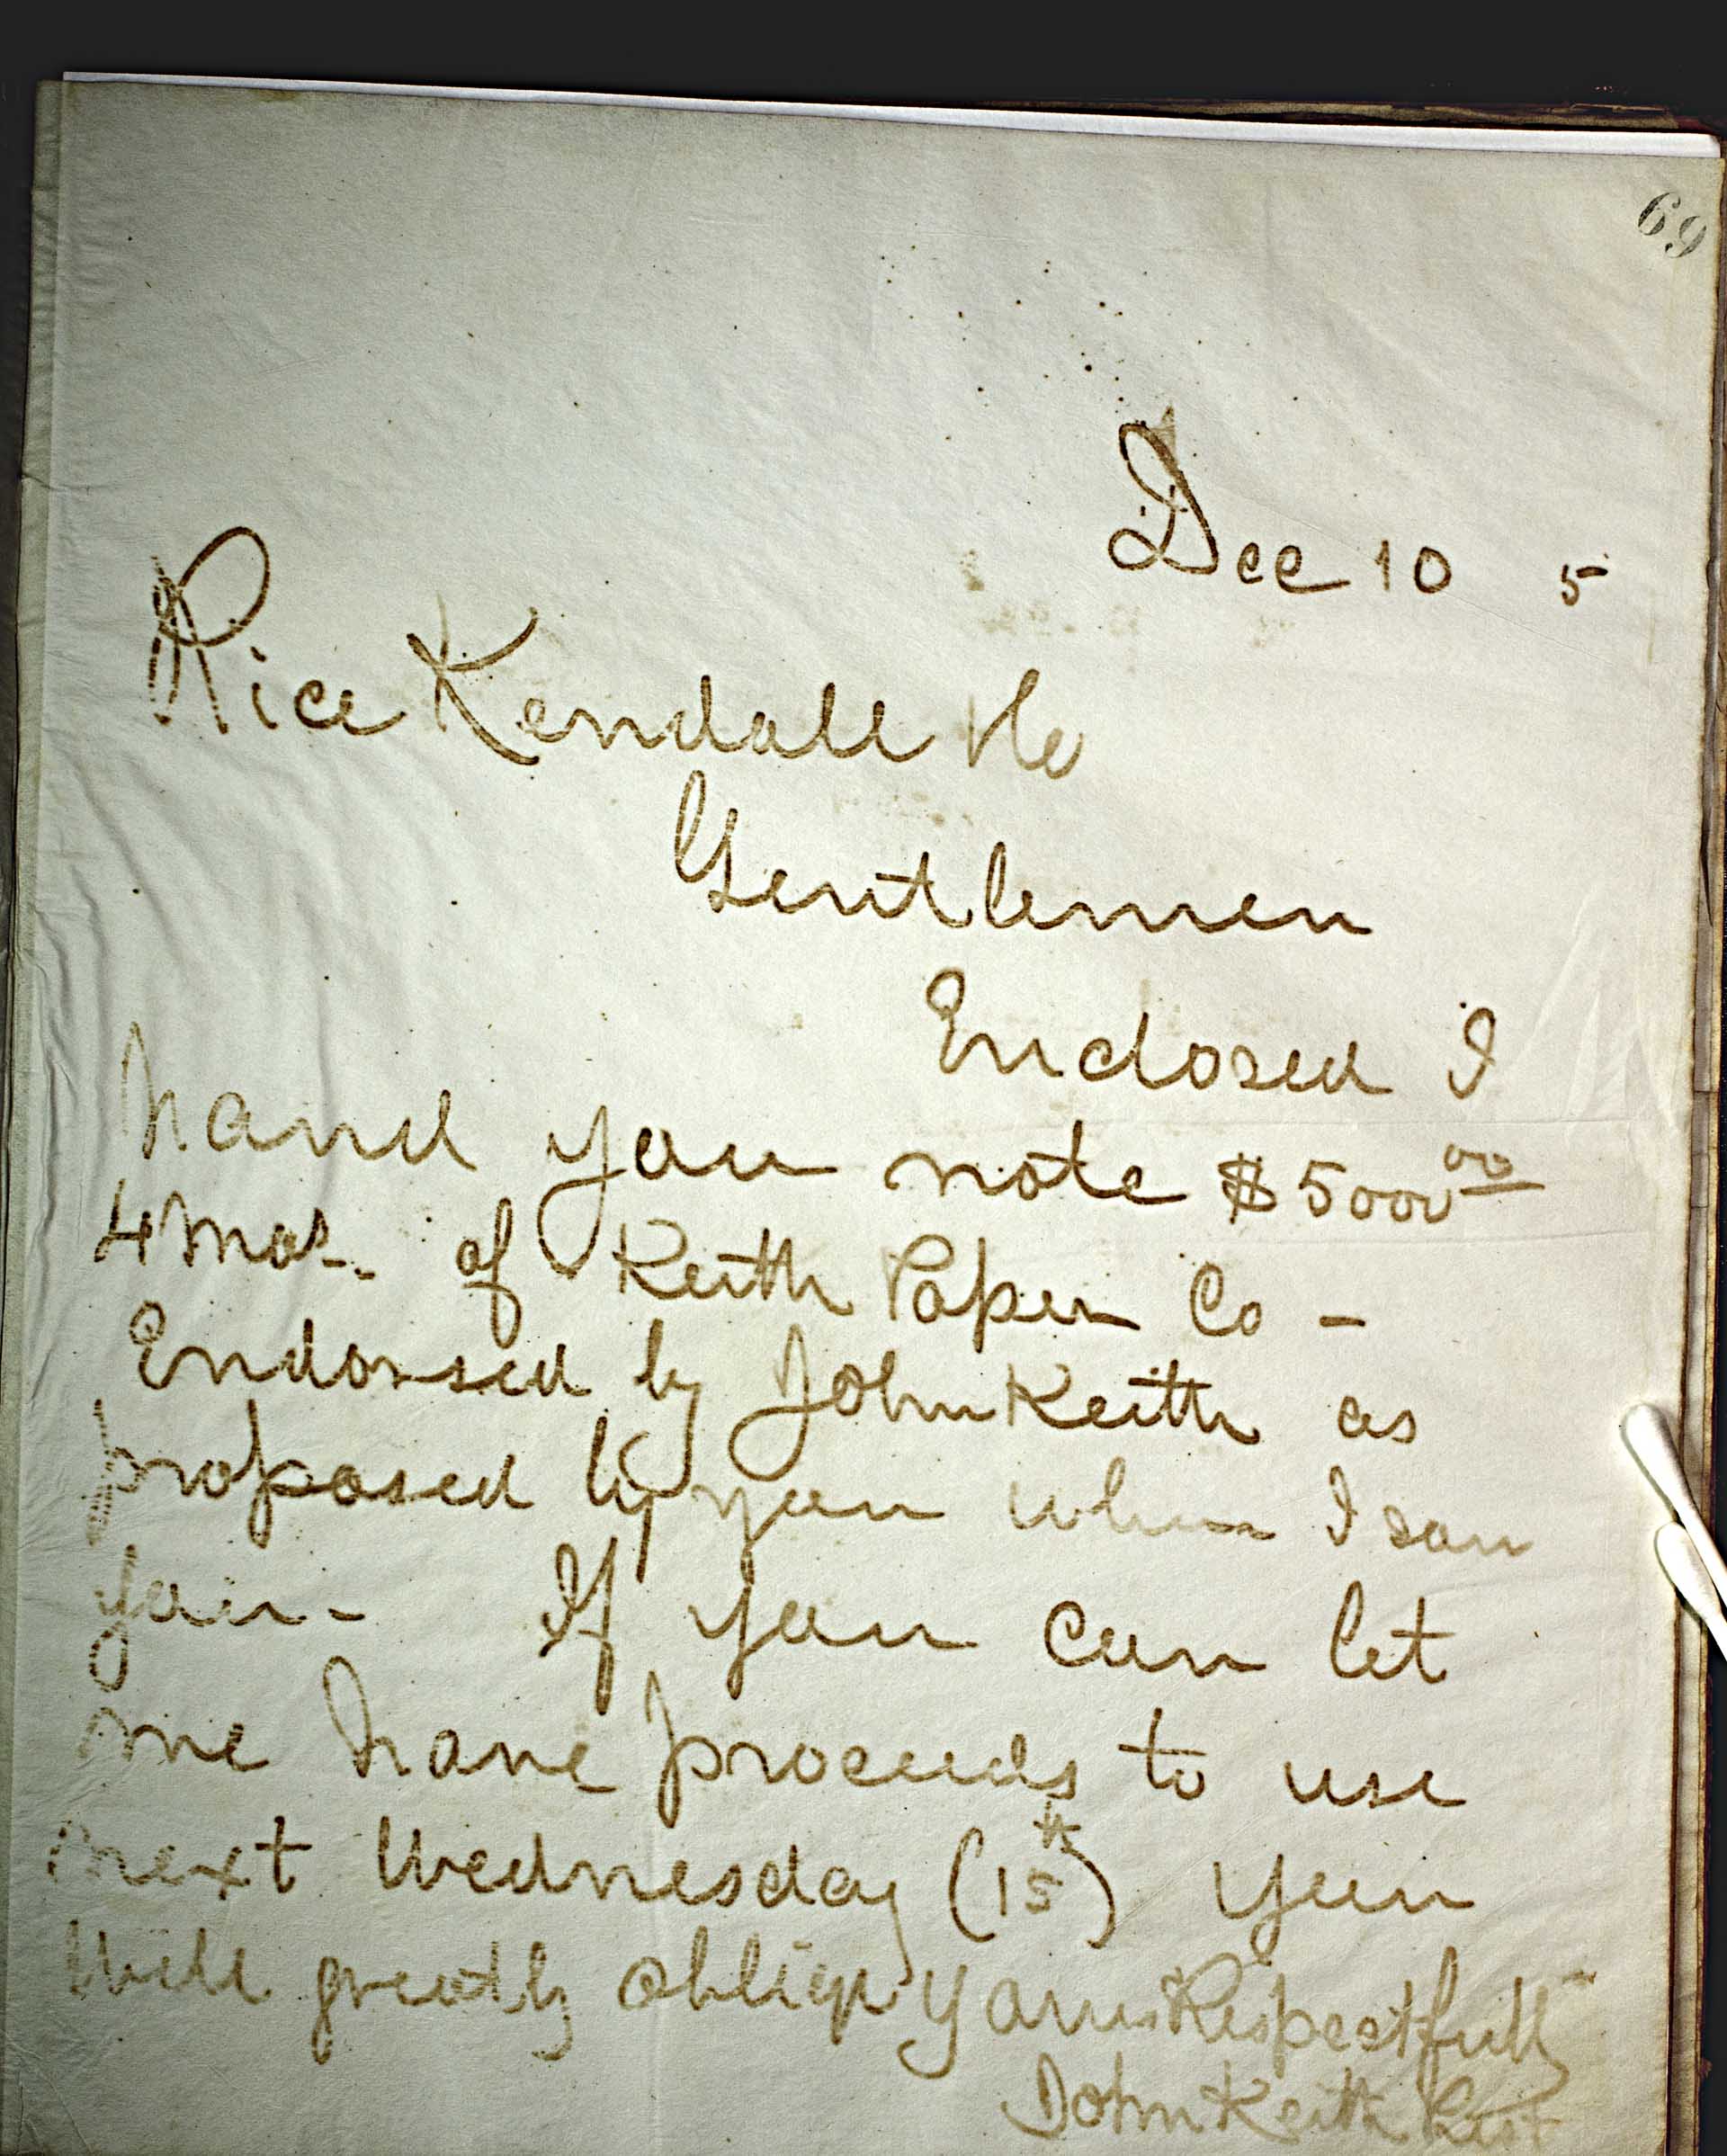 69
Dec 10 5
Rice Kendall & Co
Gentlemen
Enclosed I
hand you note $5000.00
4 mos. of Keith Paper Co -
Endorsed by John Keith as
proposed by you when I saw
you - If you can let
me have proceeds to use
next Wednesday (15th) you
will greatly oblige Yours Respectfully
John Keith